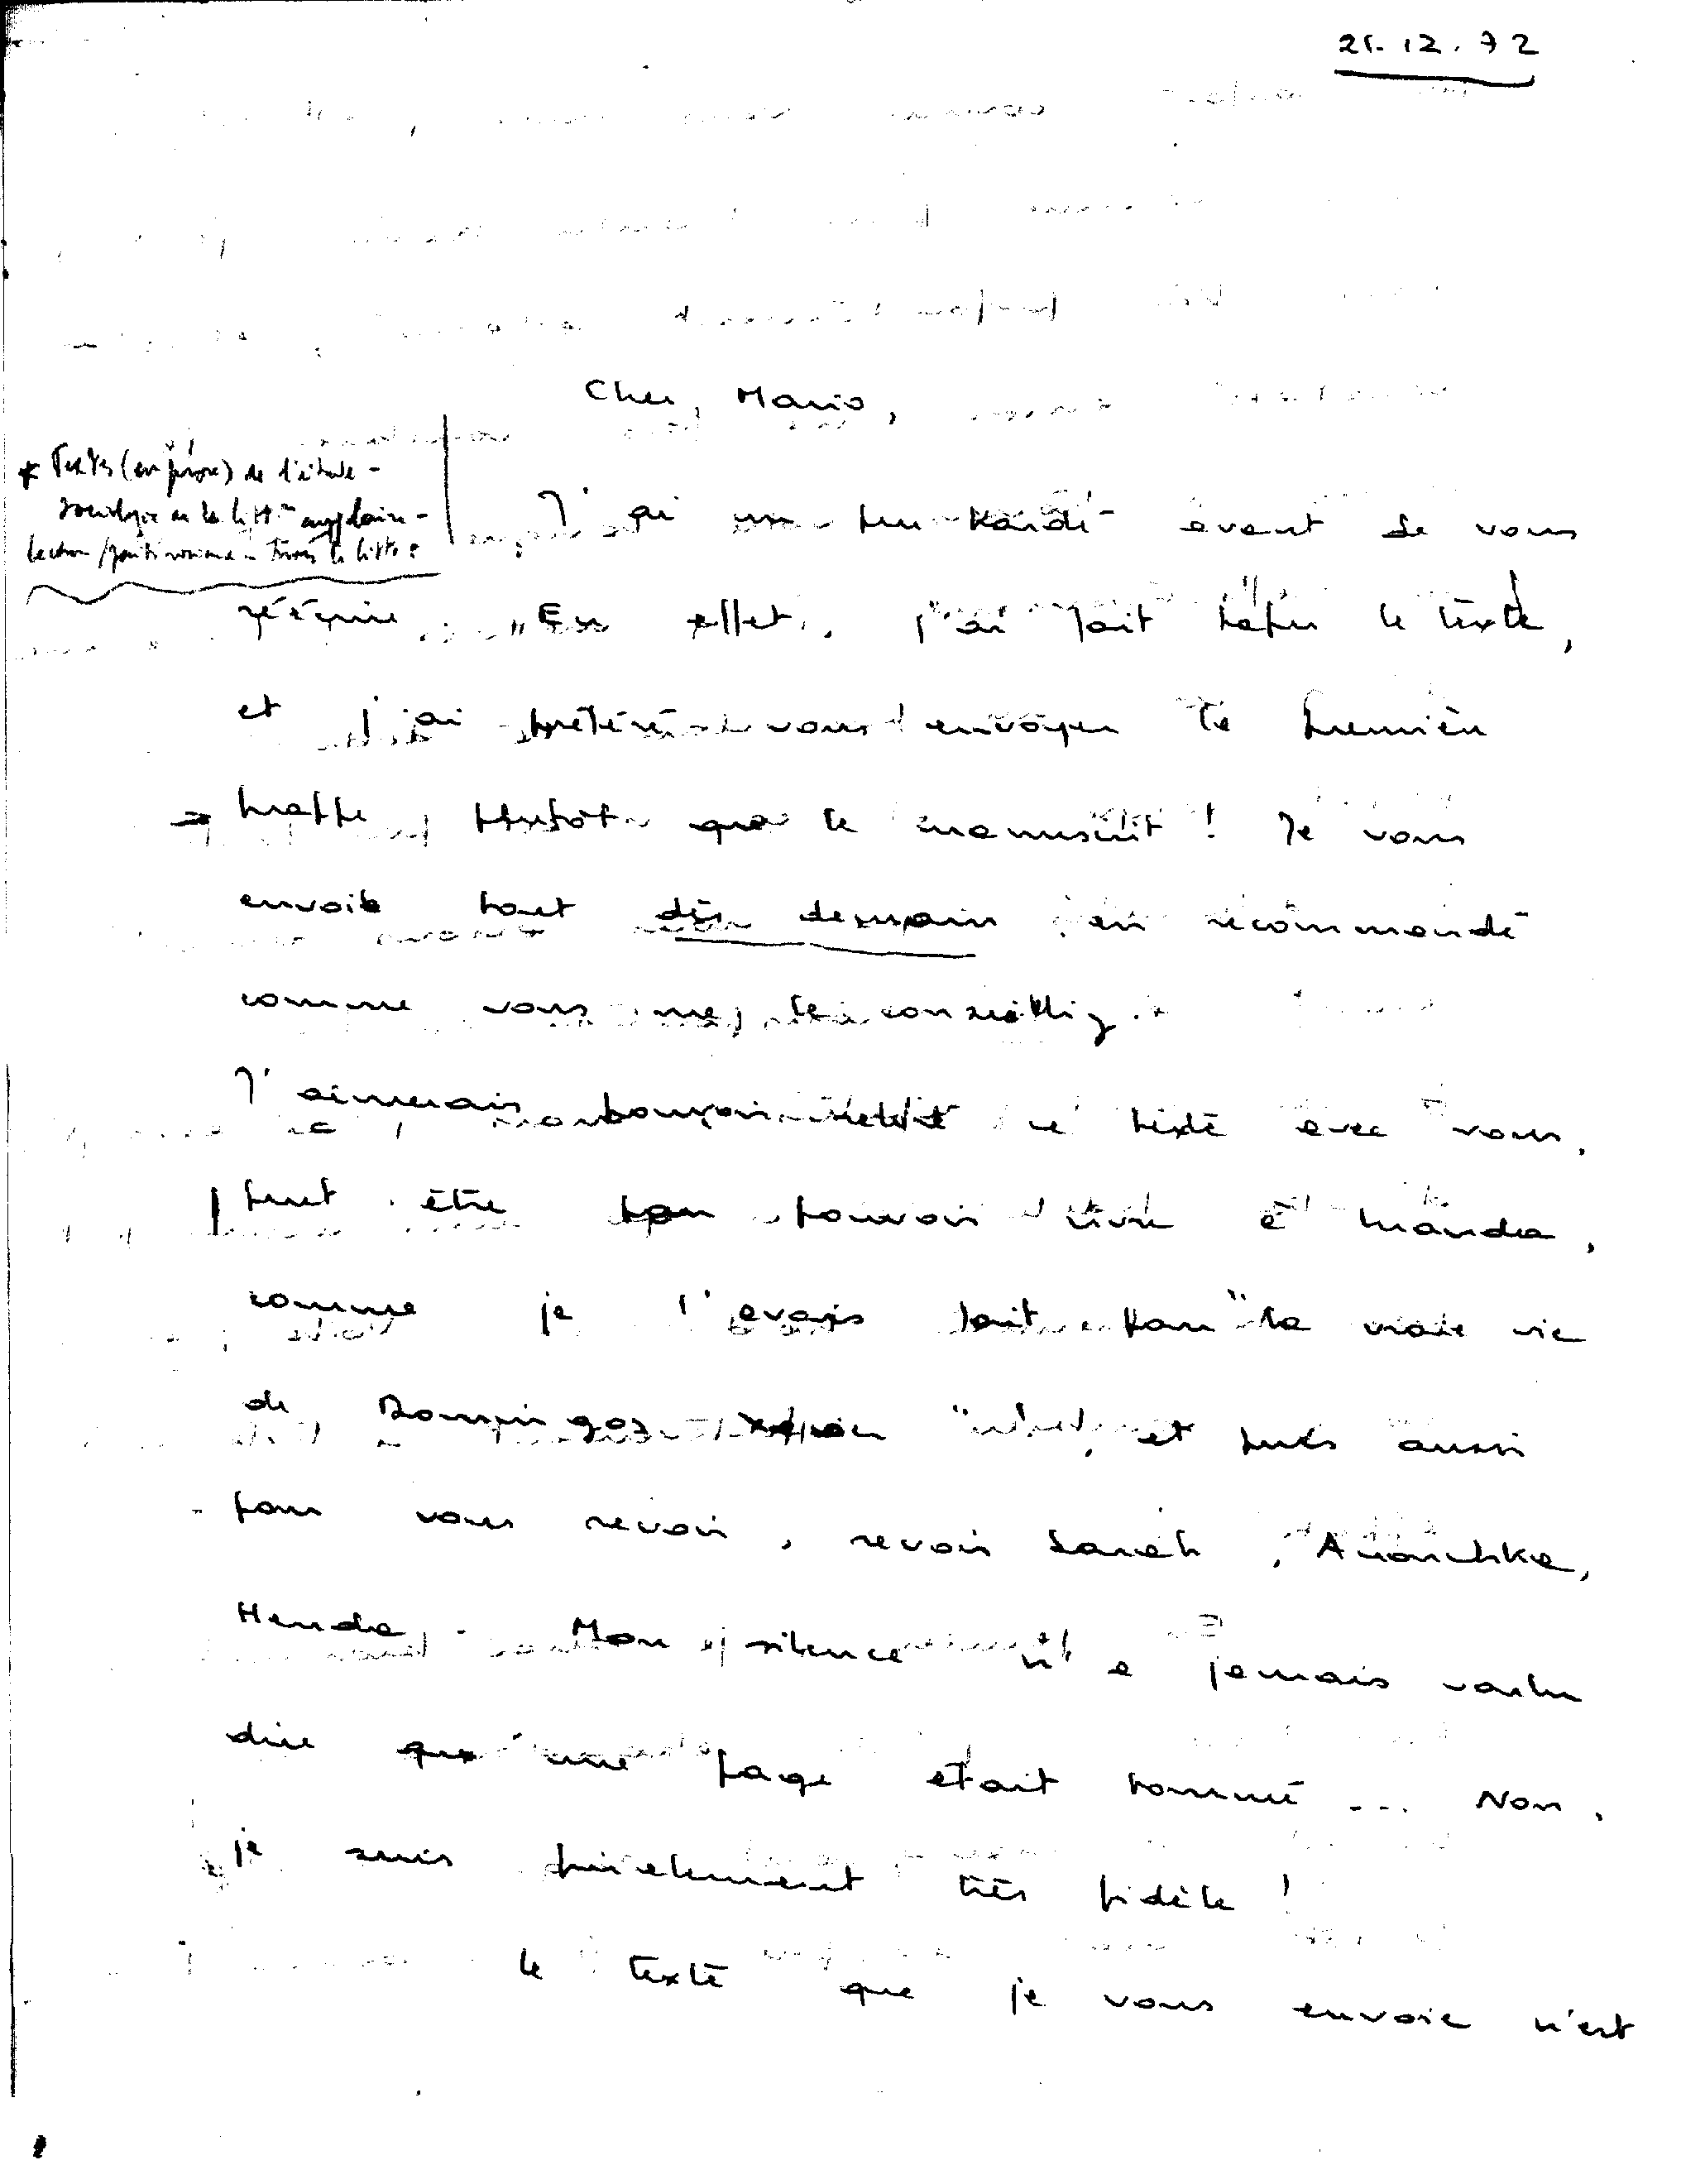 21.12.72
Cher Mario,
* Textes (en prose) de l'étude -
sociologie de la litt. angolaise -
J'ai un peu tardé avant de vous
réécrire. En effet, j'ai fait taper le texte,
et j'ai préféré vous envoyer la première
frappe, plutôt que le manuscrit ! Je vous
envoie tout dès demain en recommandé
comme vous me le conseilliez.
J'aimerais pouvoir ce texte avec vous,
peut être pouvoir vivre à Luanda,
comme je l'avais fait pour "la vraie vie
de Domingos Xavier", et puis aussi
pour vous revoir, revoir Sarah, Anouchka,
Henda. Mon silence n'a jamais voulu
dire qu'une page était tournée ... Non,
je suis très fidèle !
le texte que je vous envoie n'est